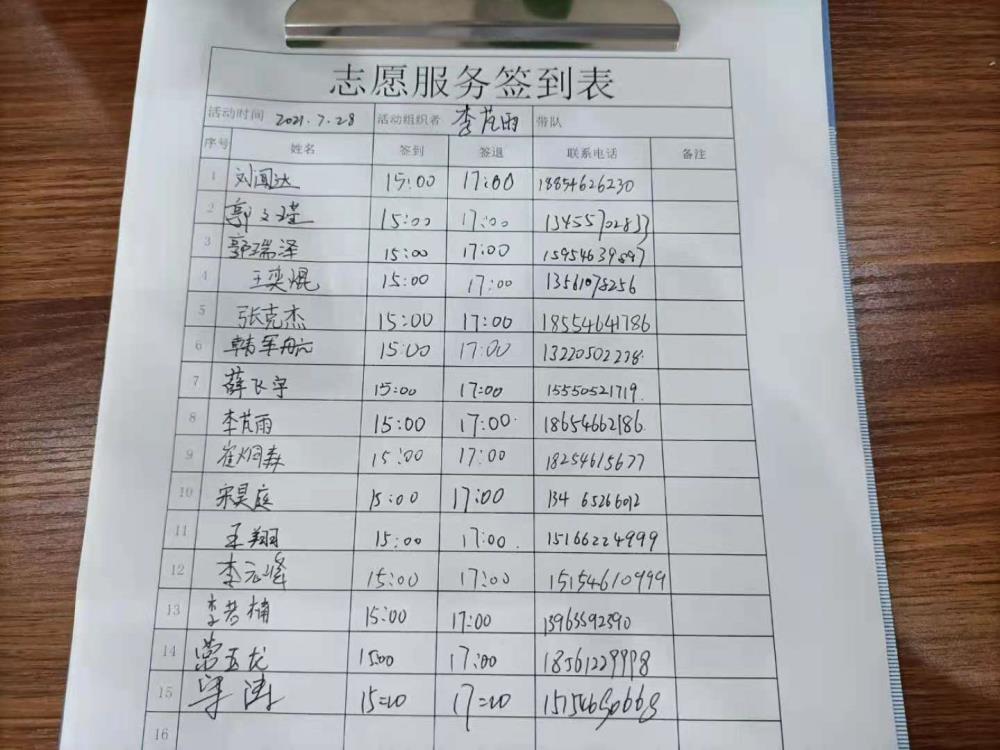 志愿服务签到表
活动时间 2021.7.28 活动组织者 李芃雨 带队
序号 姓名 签到 签退 联系电话 备注
1 刘闻达 15:00 17:00 18854626230
2 郭文瑾 15:00 17:00 13455702833
3 郭瑞泽 15:00 17:00 15954639897
4 王奕焜 15:00 17:00 13561078256
5 张克杰 15:00 17:00 18554641786
6 韩军航 15:00 17:00 13220502278
7 薛飞宇 15:00 17:00 15550521719
8 李芃雨 15:00 17:00 18654662186
9 崔炯森 15:00 17:00 18254615677
10 宋昊庭 15:00 17:00 134 65266012
11 王翔 15:00 17:00 15166224999
12 李元峰 15:00 17:00 15154610999
13 李 楠 15:00 17:00 13963592390
14 常玉龙 15:00 17:00 18561229998
15 15:00 17:00
16